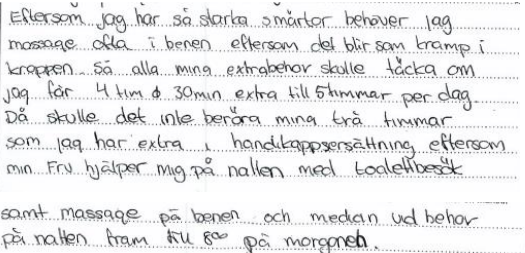 Eftersom jag har så starka smärtor behöver jag
massage ofta i benen eftersom det blir som kramp i
kroppen. Så alla mina extrabehov skulle täcka om
jag får 4 tim & 30 min extra till 5 timmar per dag.
Då skulle det inte beröra mina trå timmar
som jag har extra i handikappsersättning eftersom
min Fru hjälper mig på natten med toalettbesök
samt massage på benen och medcin vid behov
på natten fram till 8⁰⁰ på morgonen.